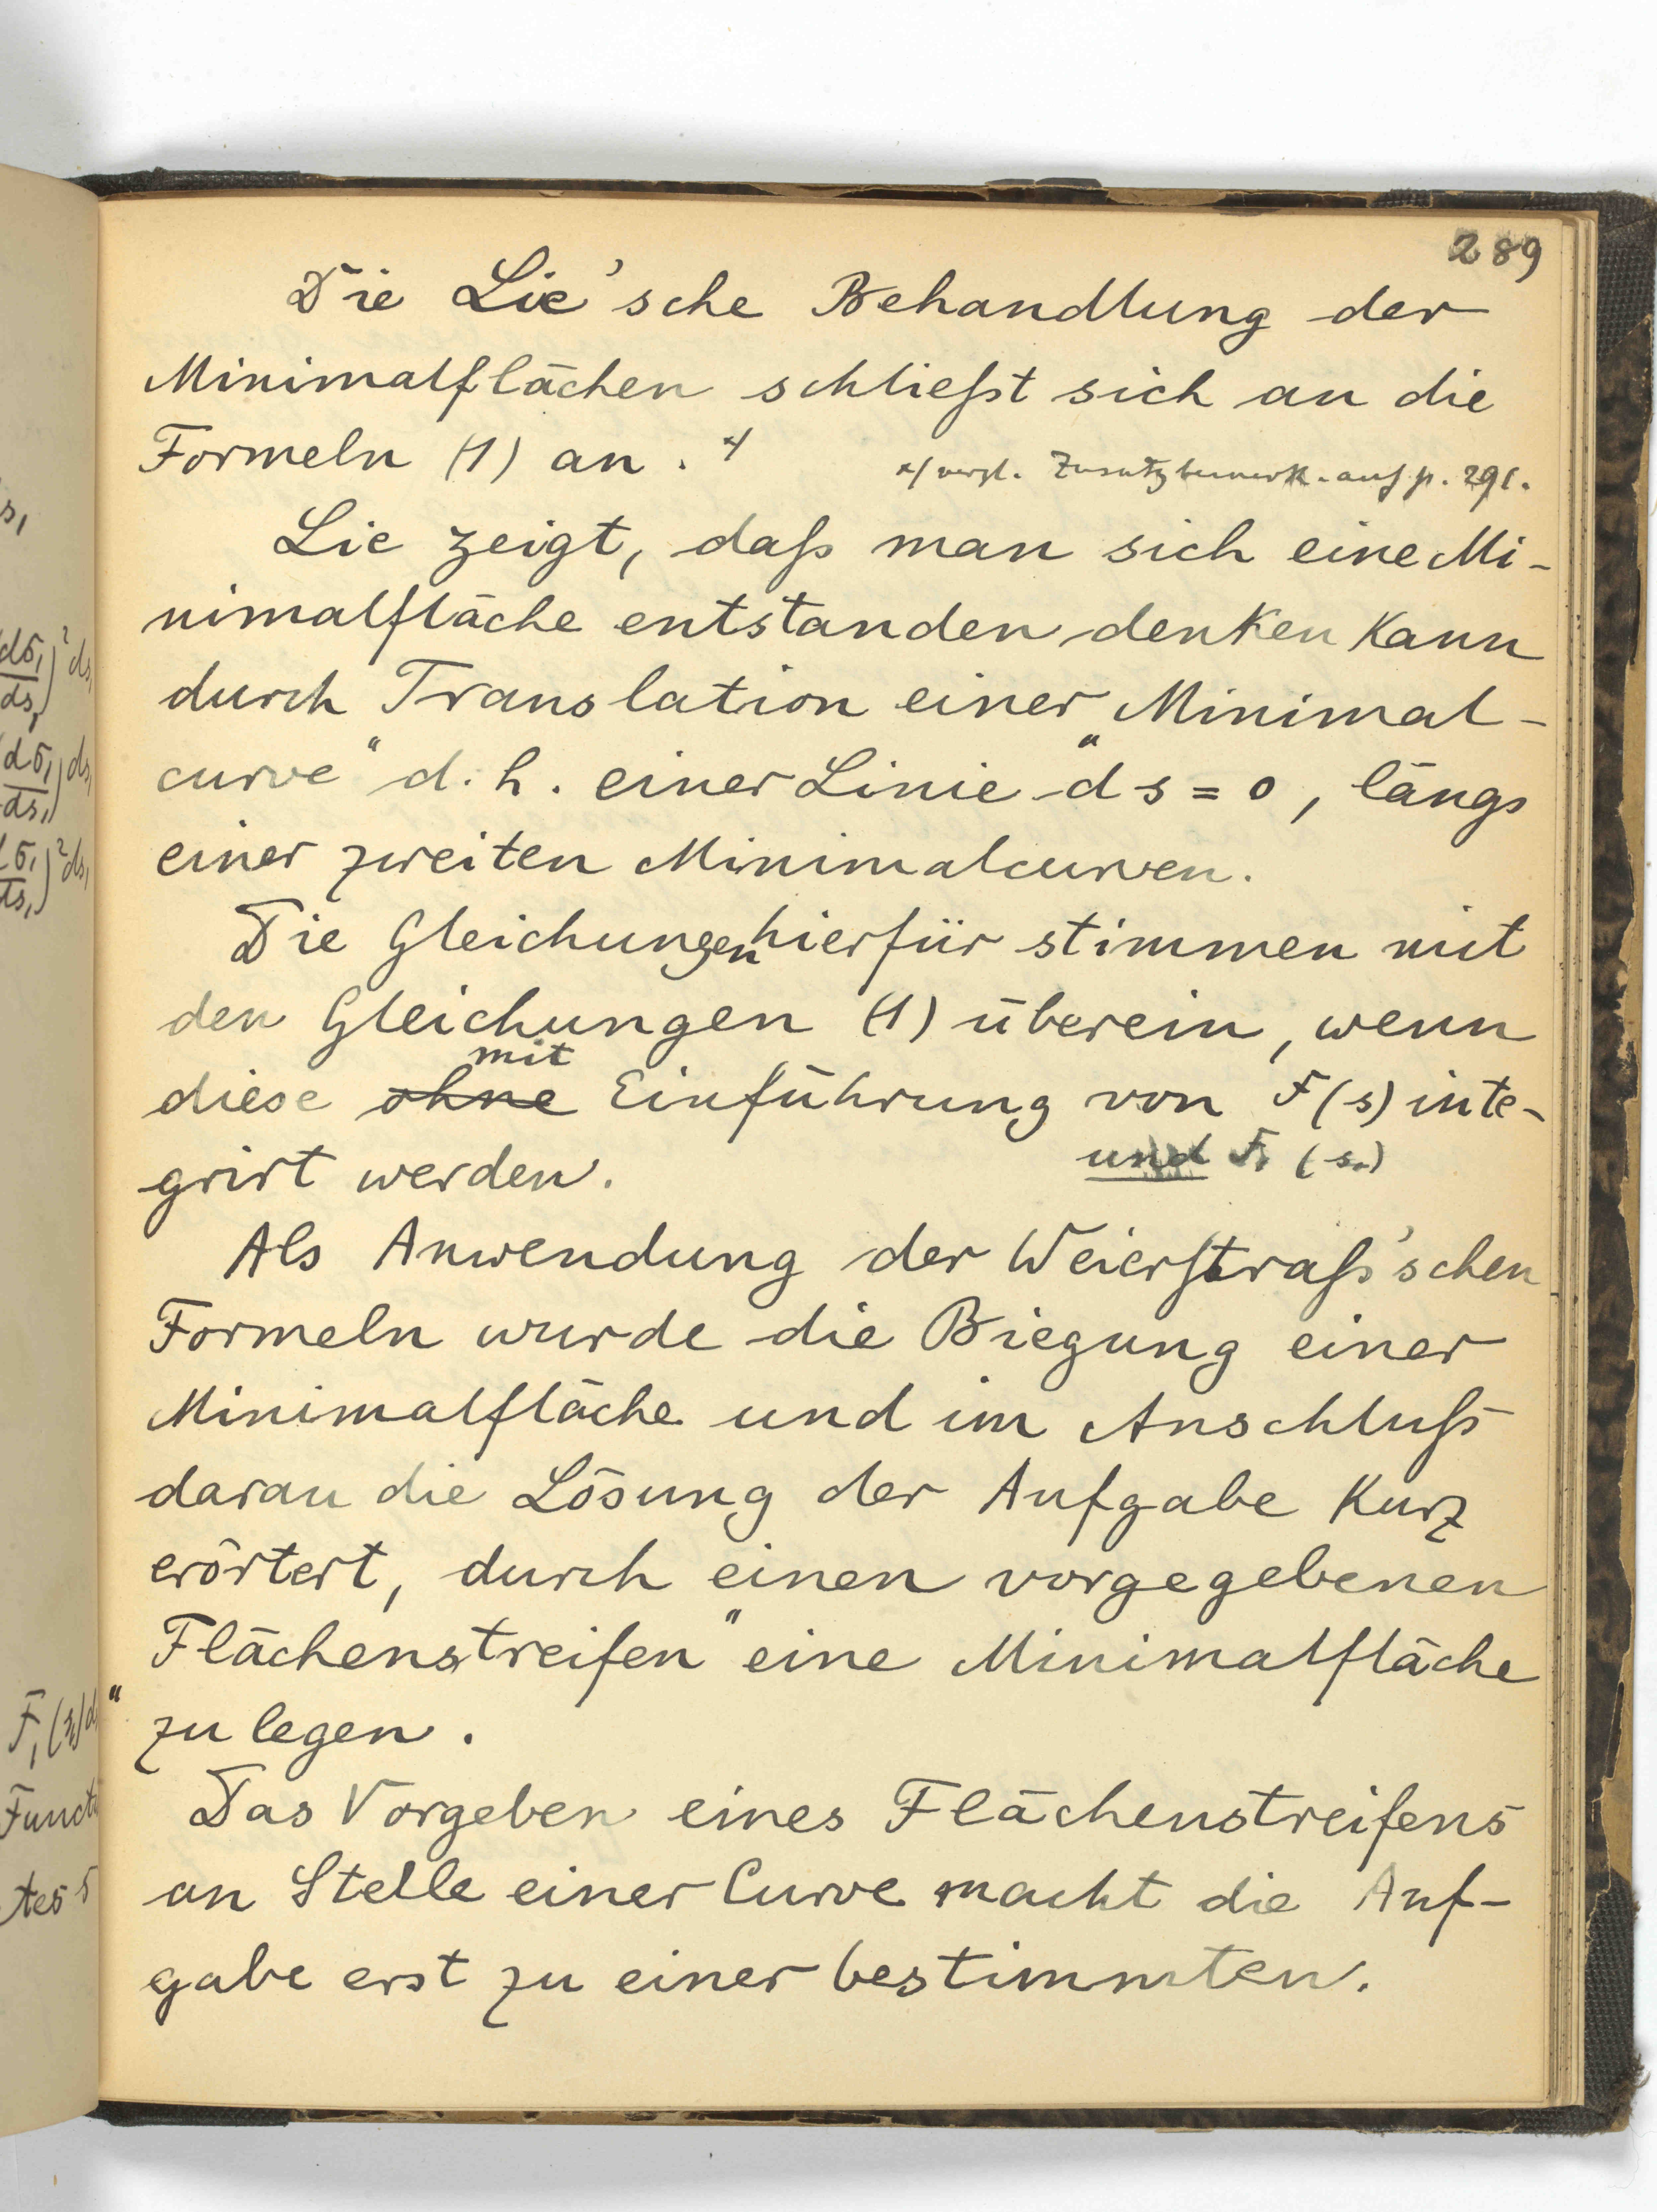 289
Die Lie'sche Behandlung der
Minimalflächen schließt sich an die
Formeln (1) an. x)
x) vergl. Zusatzbemerk. auf p. 291.
Lie zeigt, daß man sich eine Mi-
nimalfläche entstanden denken kann
durch Translation einer „Minimal-
curve“ d. h. einer Linie ds = 0, längs
einer zweiten Minimalcurven.
Die Gleichungen hierfür stimmen mit
den Gleichungen (1) überein, wenn
mit
diese ohne Einführung von F(s) inte-
und F₁(s₁)
grirt werden.
Als Anwendung der Weierstraß'schen
Formeln wurde die Biegung einer
Minimalfläche und im Anschluß
daran die Lösung der Aufgabe kurz
erörtert, durch einen vorgegebenen
„Flächenstreifen“ eine Minimalfläche
zu legen.
Das Vorgeben eines Flächenstreifens
an Stelle einer Curve macht die Auf-
gabe erst zu einer bestimmten.